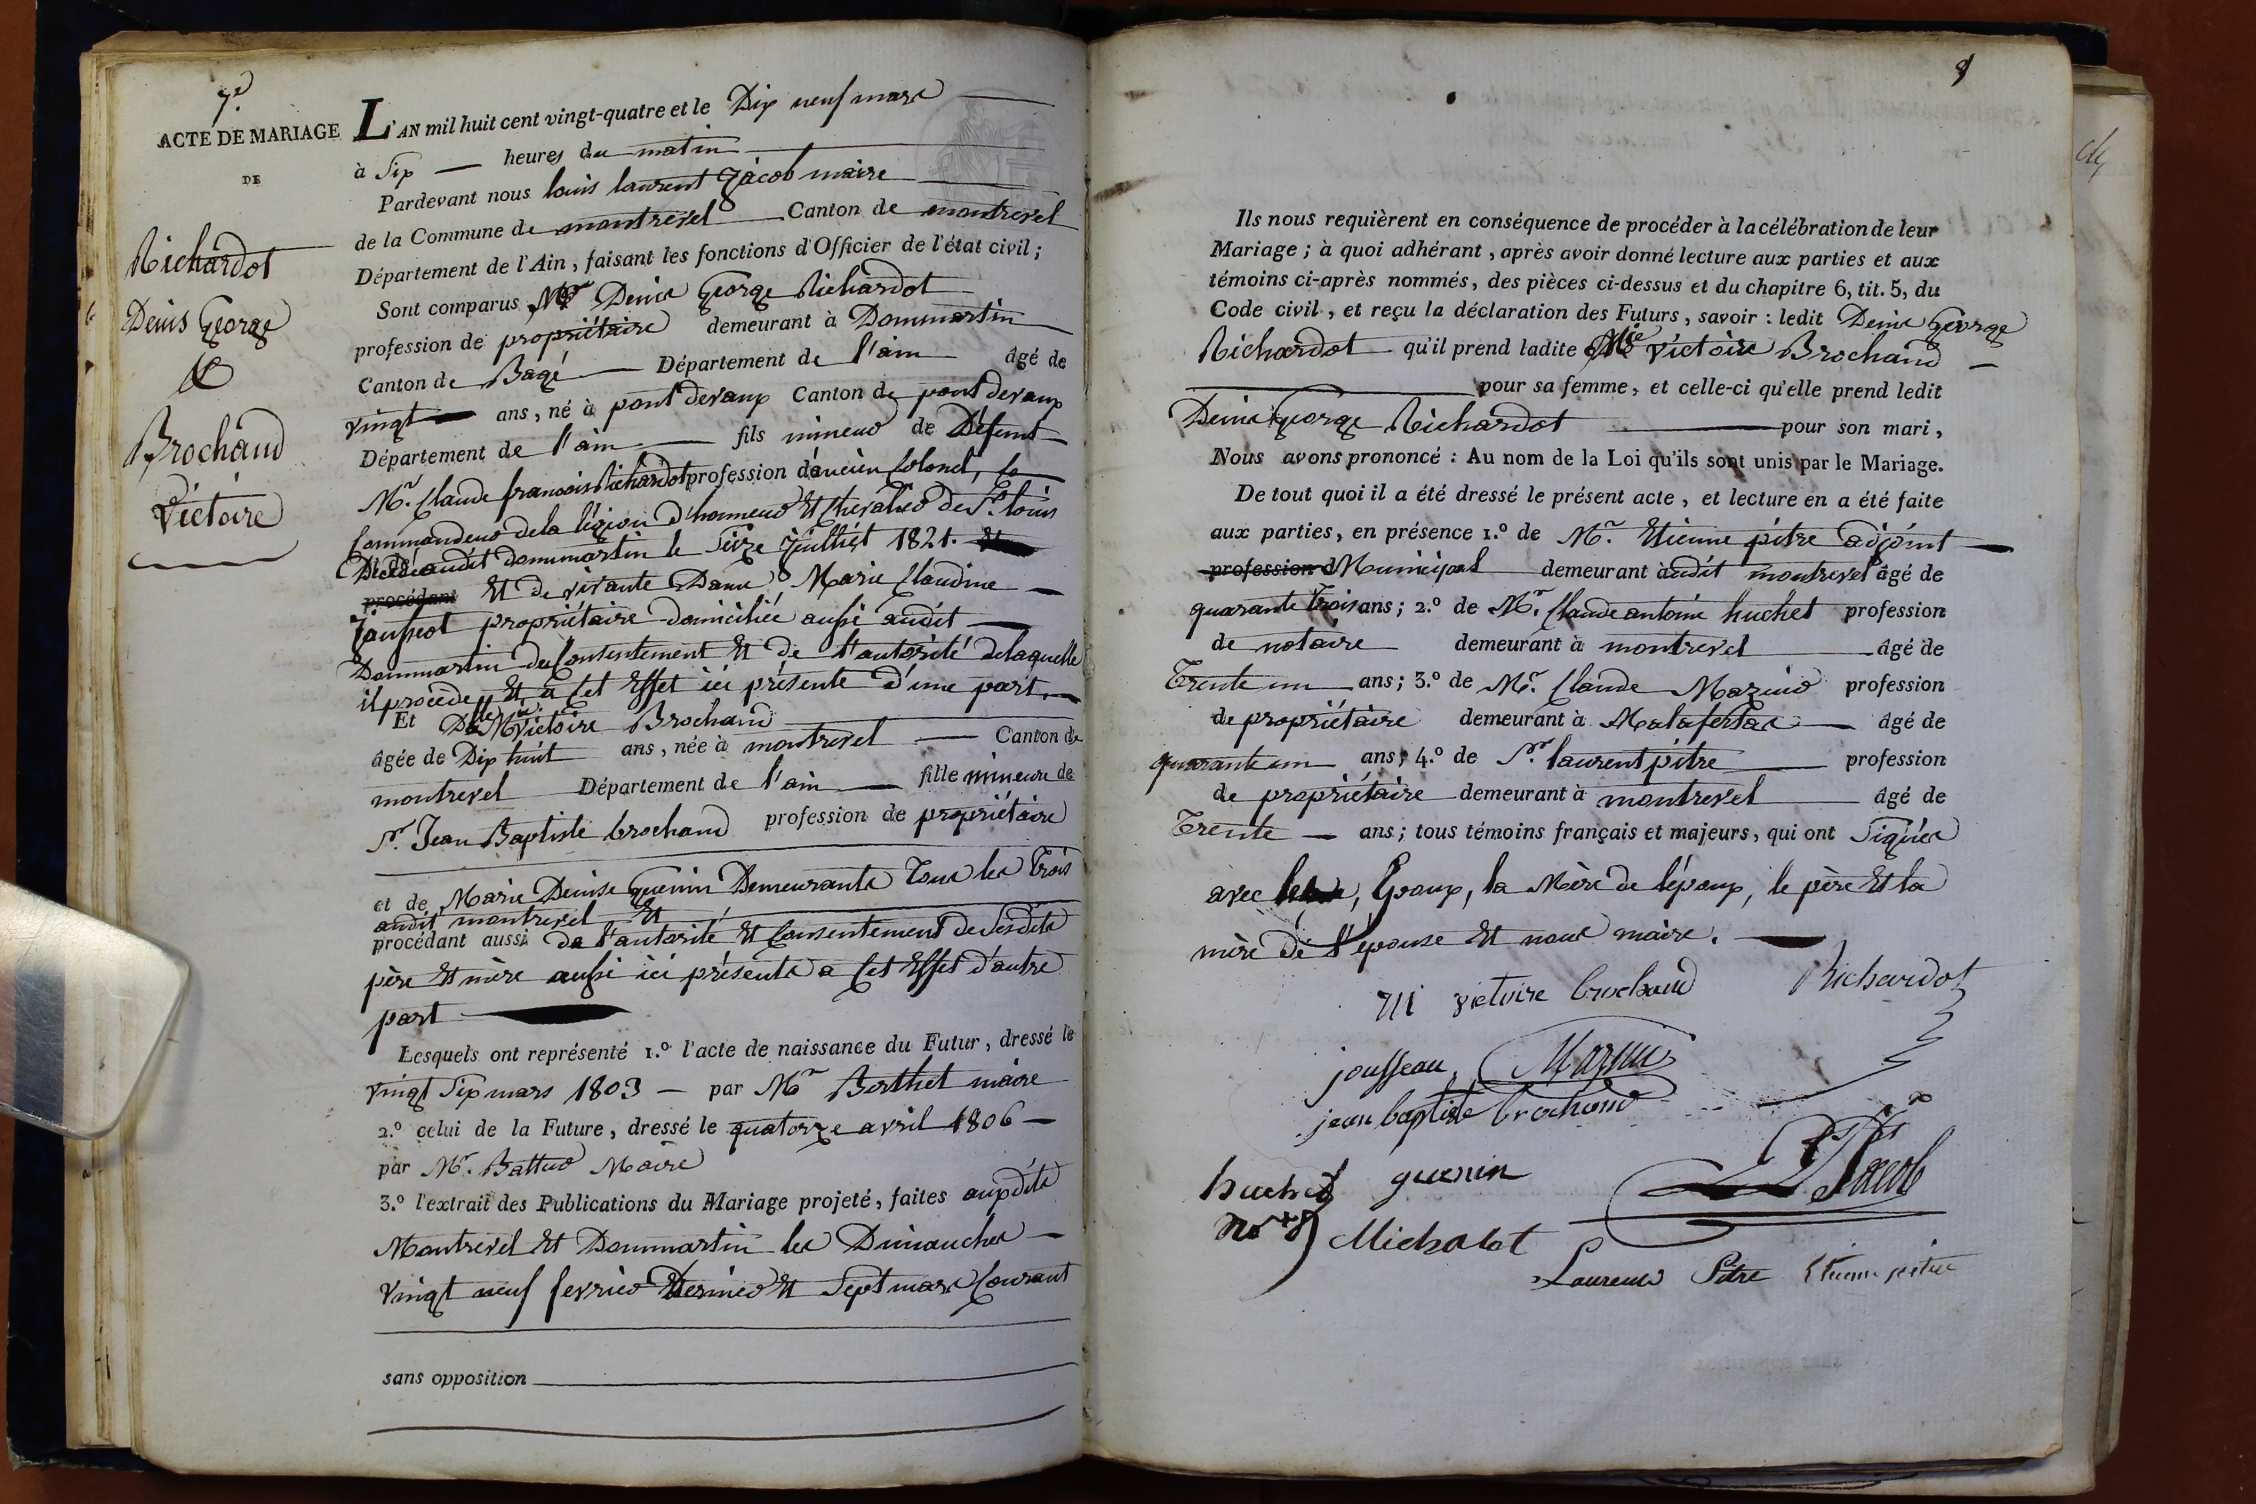 7.e
ACTE DE MARIAGE
DE
Richardot
Denis George
&
Brochaud
Victoire
L'AN mil huit cent vingt-quatre et le Dix neuf mars
à Six heures du matin
Pardevant nous louis laurent Jacob maire
de la Commune de montrevel Canton de montrevel
Département de l'Ain, faisant les fonctions d'Officier de l'état civil;
Sont comparus Mr Denis George Richardot
profession de propriétaire demeurant à Dommartin
Canton de Bagé Département de l'ain âgé de
vingt ans, né à pont devaux Canton de pont devaux
Département de l'ain fils mineur de Défunt
Mr. Claude francois Richardot profession d'ancien Colonel,
Commandeur de la légion d'honneur Et Chevalier de St. louis
Décédé audit dommartin le Seize Juillet 1821.
procédant Et de vivante Dame Marie Claudine
Jousseot propriétaire domiciliée aussi audit
Dommartin du Consentement Et de l'autorité delaquelle
il procède, Et à Cet Effet ici présente d'une part,
Et Dlle Mie Victoire Brochaud
âgée de Dix huit ans, née à montrevel Canton de
montrevel Département de l'ain fille mineure de
Sr. Jean Baptiste brochaud profession de propriétaire
et de Marie Denise Guenin Demeurants Tous les trois
audit montrevel Et
procédant aussi de l'autorité Et Consentement de Sesdits
père Et mère aussi ici présents a Cet Effet d'autre
part
Lesquels ont représenté 1.º l'acte de naissance du Futur, dressé le
vingt Six mars 1803 par Mr Berthet maire
2.º celui de la Future, dressé le quatorze avril 1806
par Mr. Battur Maire
3.º l'extrait des Publications du Mariage projeté, faites auxdits
Montrevel Et Dommartin les Dimanches
vingt neuf fevrier Dernier Et Sept mars Courant
sans opposition
8
Ils nous requièrent en conséquence de procéder à la célébration de leur
Mariage; à quoi adhérant, après avoir donné lecture aux parties et aux
témoins ci-après nommés, des pièces ci-dessus et du chapitre 6, tit. 5, du
Code civil, et reçu la déclaration des Futurs, savoir: ledit Denis George
Richardot qu'il prend ladite Mie victoire Brochaud
pour sa femme, et celle-ci qu'elle prend ledit
Denis George Richardot pour son mari,
Nous avons prononcé: Au nom de la Loi qu'ils sont unis par le Mariage.
De tout quoi il a été dressé le présent acte, et lecture en a été faite
aux parties, en présence 1.º de Mr. Etienne pitre adjoint
profession d Municipal demeurant audit montrevel âgé de
quarante trois ans; 2.º de Mr. Claude antoine huchet profession
de notaire demeurant à montrevel âgé de
Trente un ans; 3.º de Mr. Claude Mazuir profession
de propriétaire demeurant à Malafertas âgé de
quarante un ans; 4.º de Sr. laurent pitre profession
de propriétaire demeurant à montrevel âgé de
Trente ans; tous témoins français et majeurs, qui ont Signés
avec les Epoux, la Mère de l'époux, le père Et la
mère de l'épouse Et nous maire.
Mi victoire brochaud Richardot
jousseau Mazuir
jean baptiste brochaud
huchet guenin Jacob
Michalot
Laurent Pitre Etienne pitre